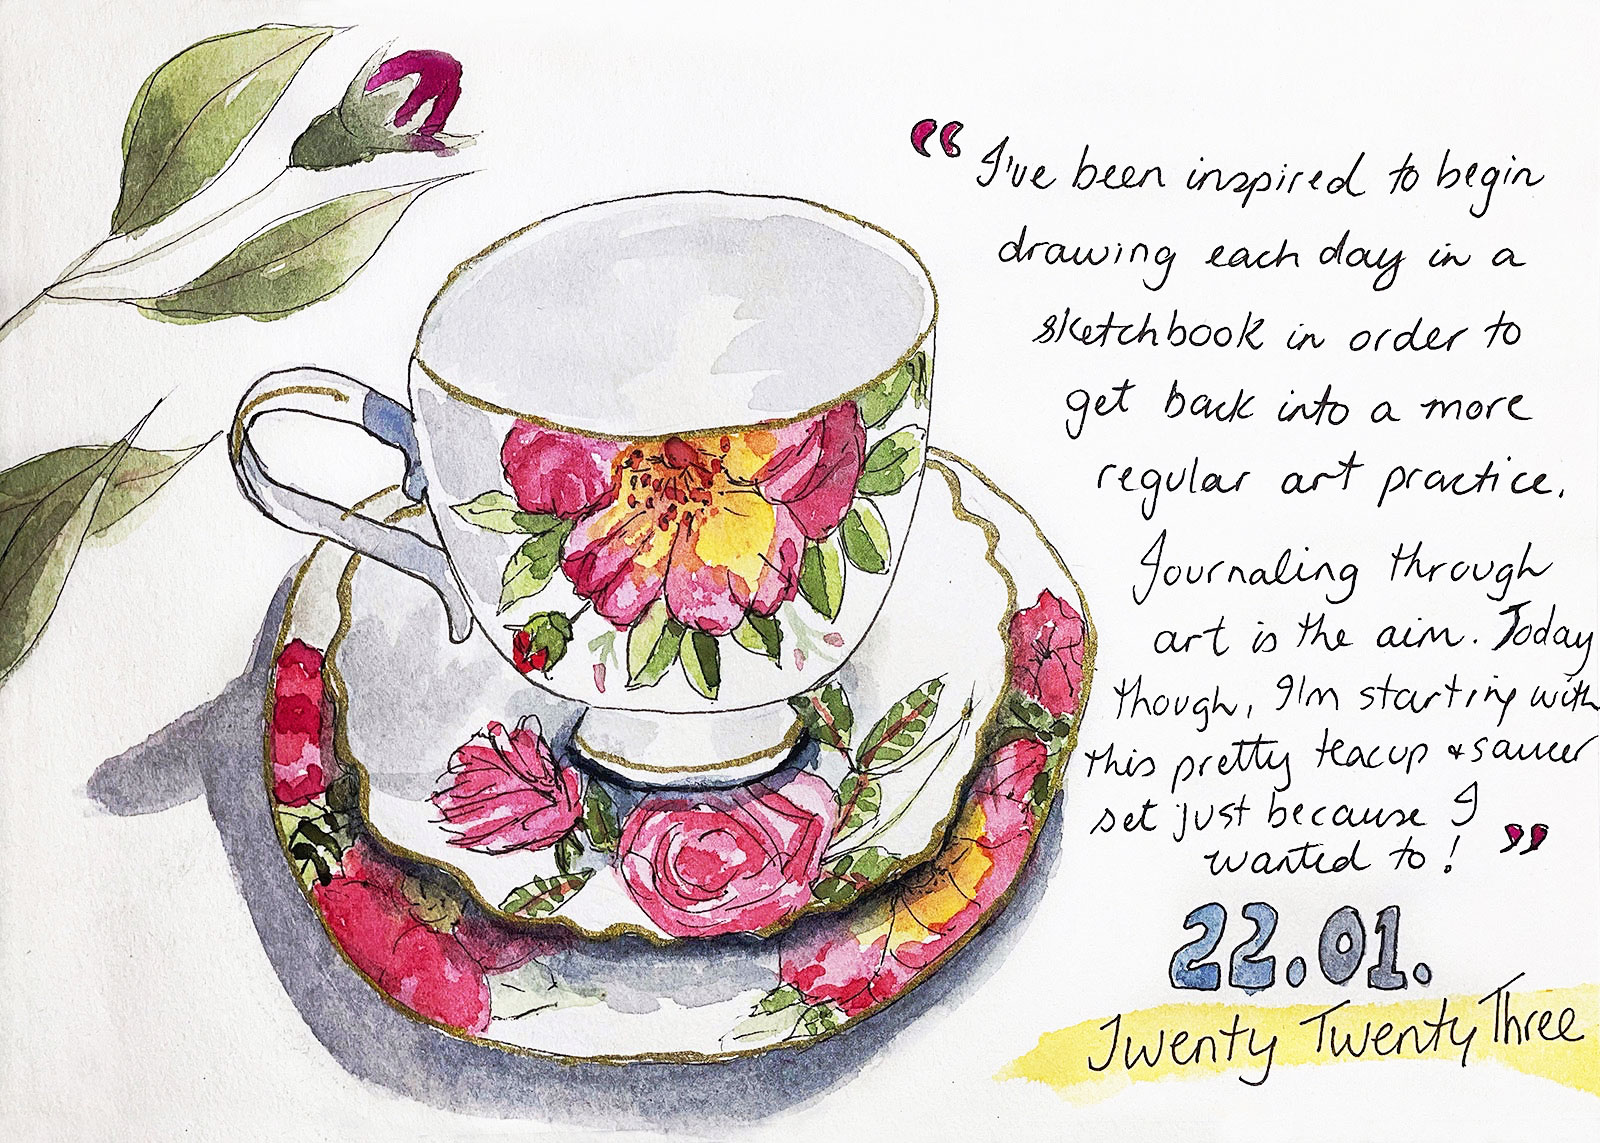 “I've been inspired to begin
drawing each day in a
sketchbook in order to
get back into a more
regular art practice.
Journaling through
art is the aim. Today
though, I'm starting with
this pretty teacup & saucer
set just because I
wanted to!”
22.01.
Twenty Twenty Three